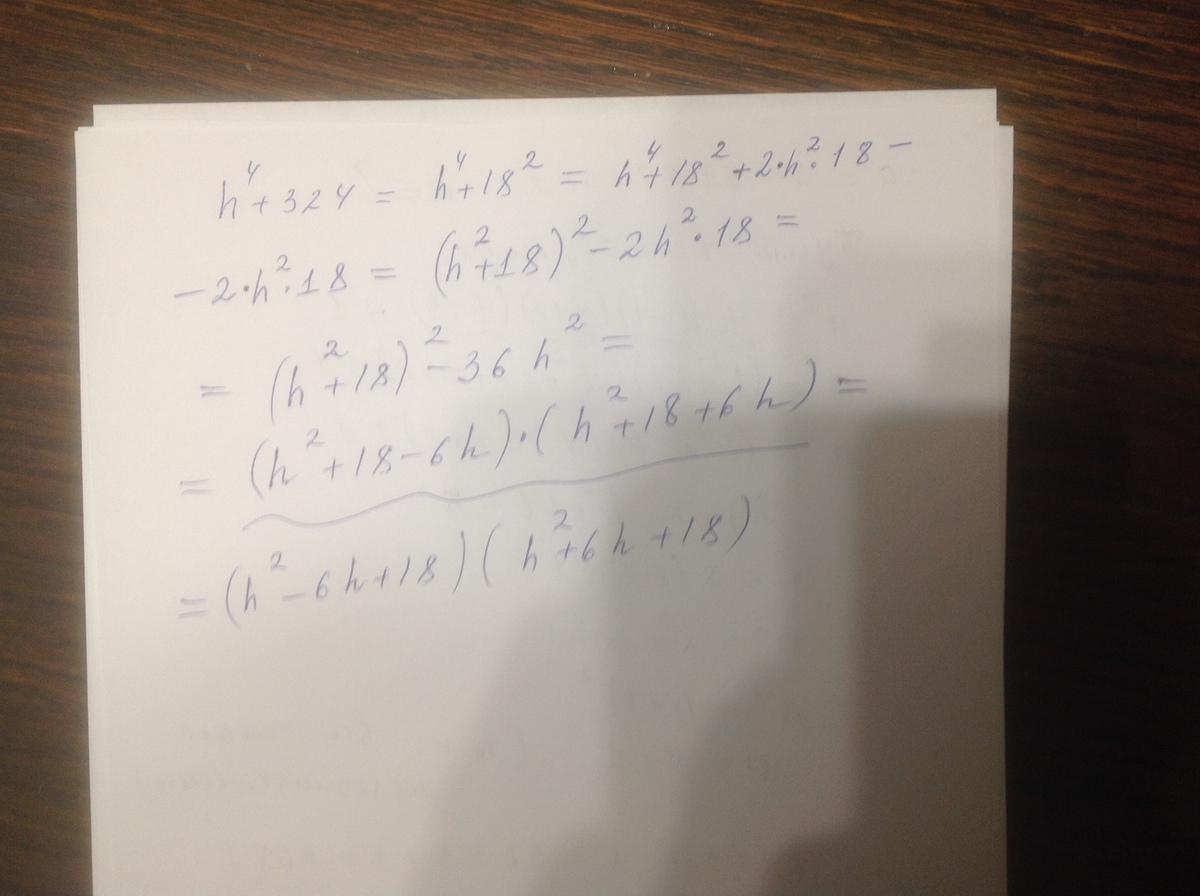 h⁴+324 = h⁴+18² = h⁴+18²+2·h²·18 −
−2·h²·18 = (h²+18)²−2h²·18 =
= (h²+18)²−36h² =
= (h²+18−6h)·(h²+18+6h) =
= (h²−6h+18)(h²+6h+18)